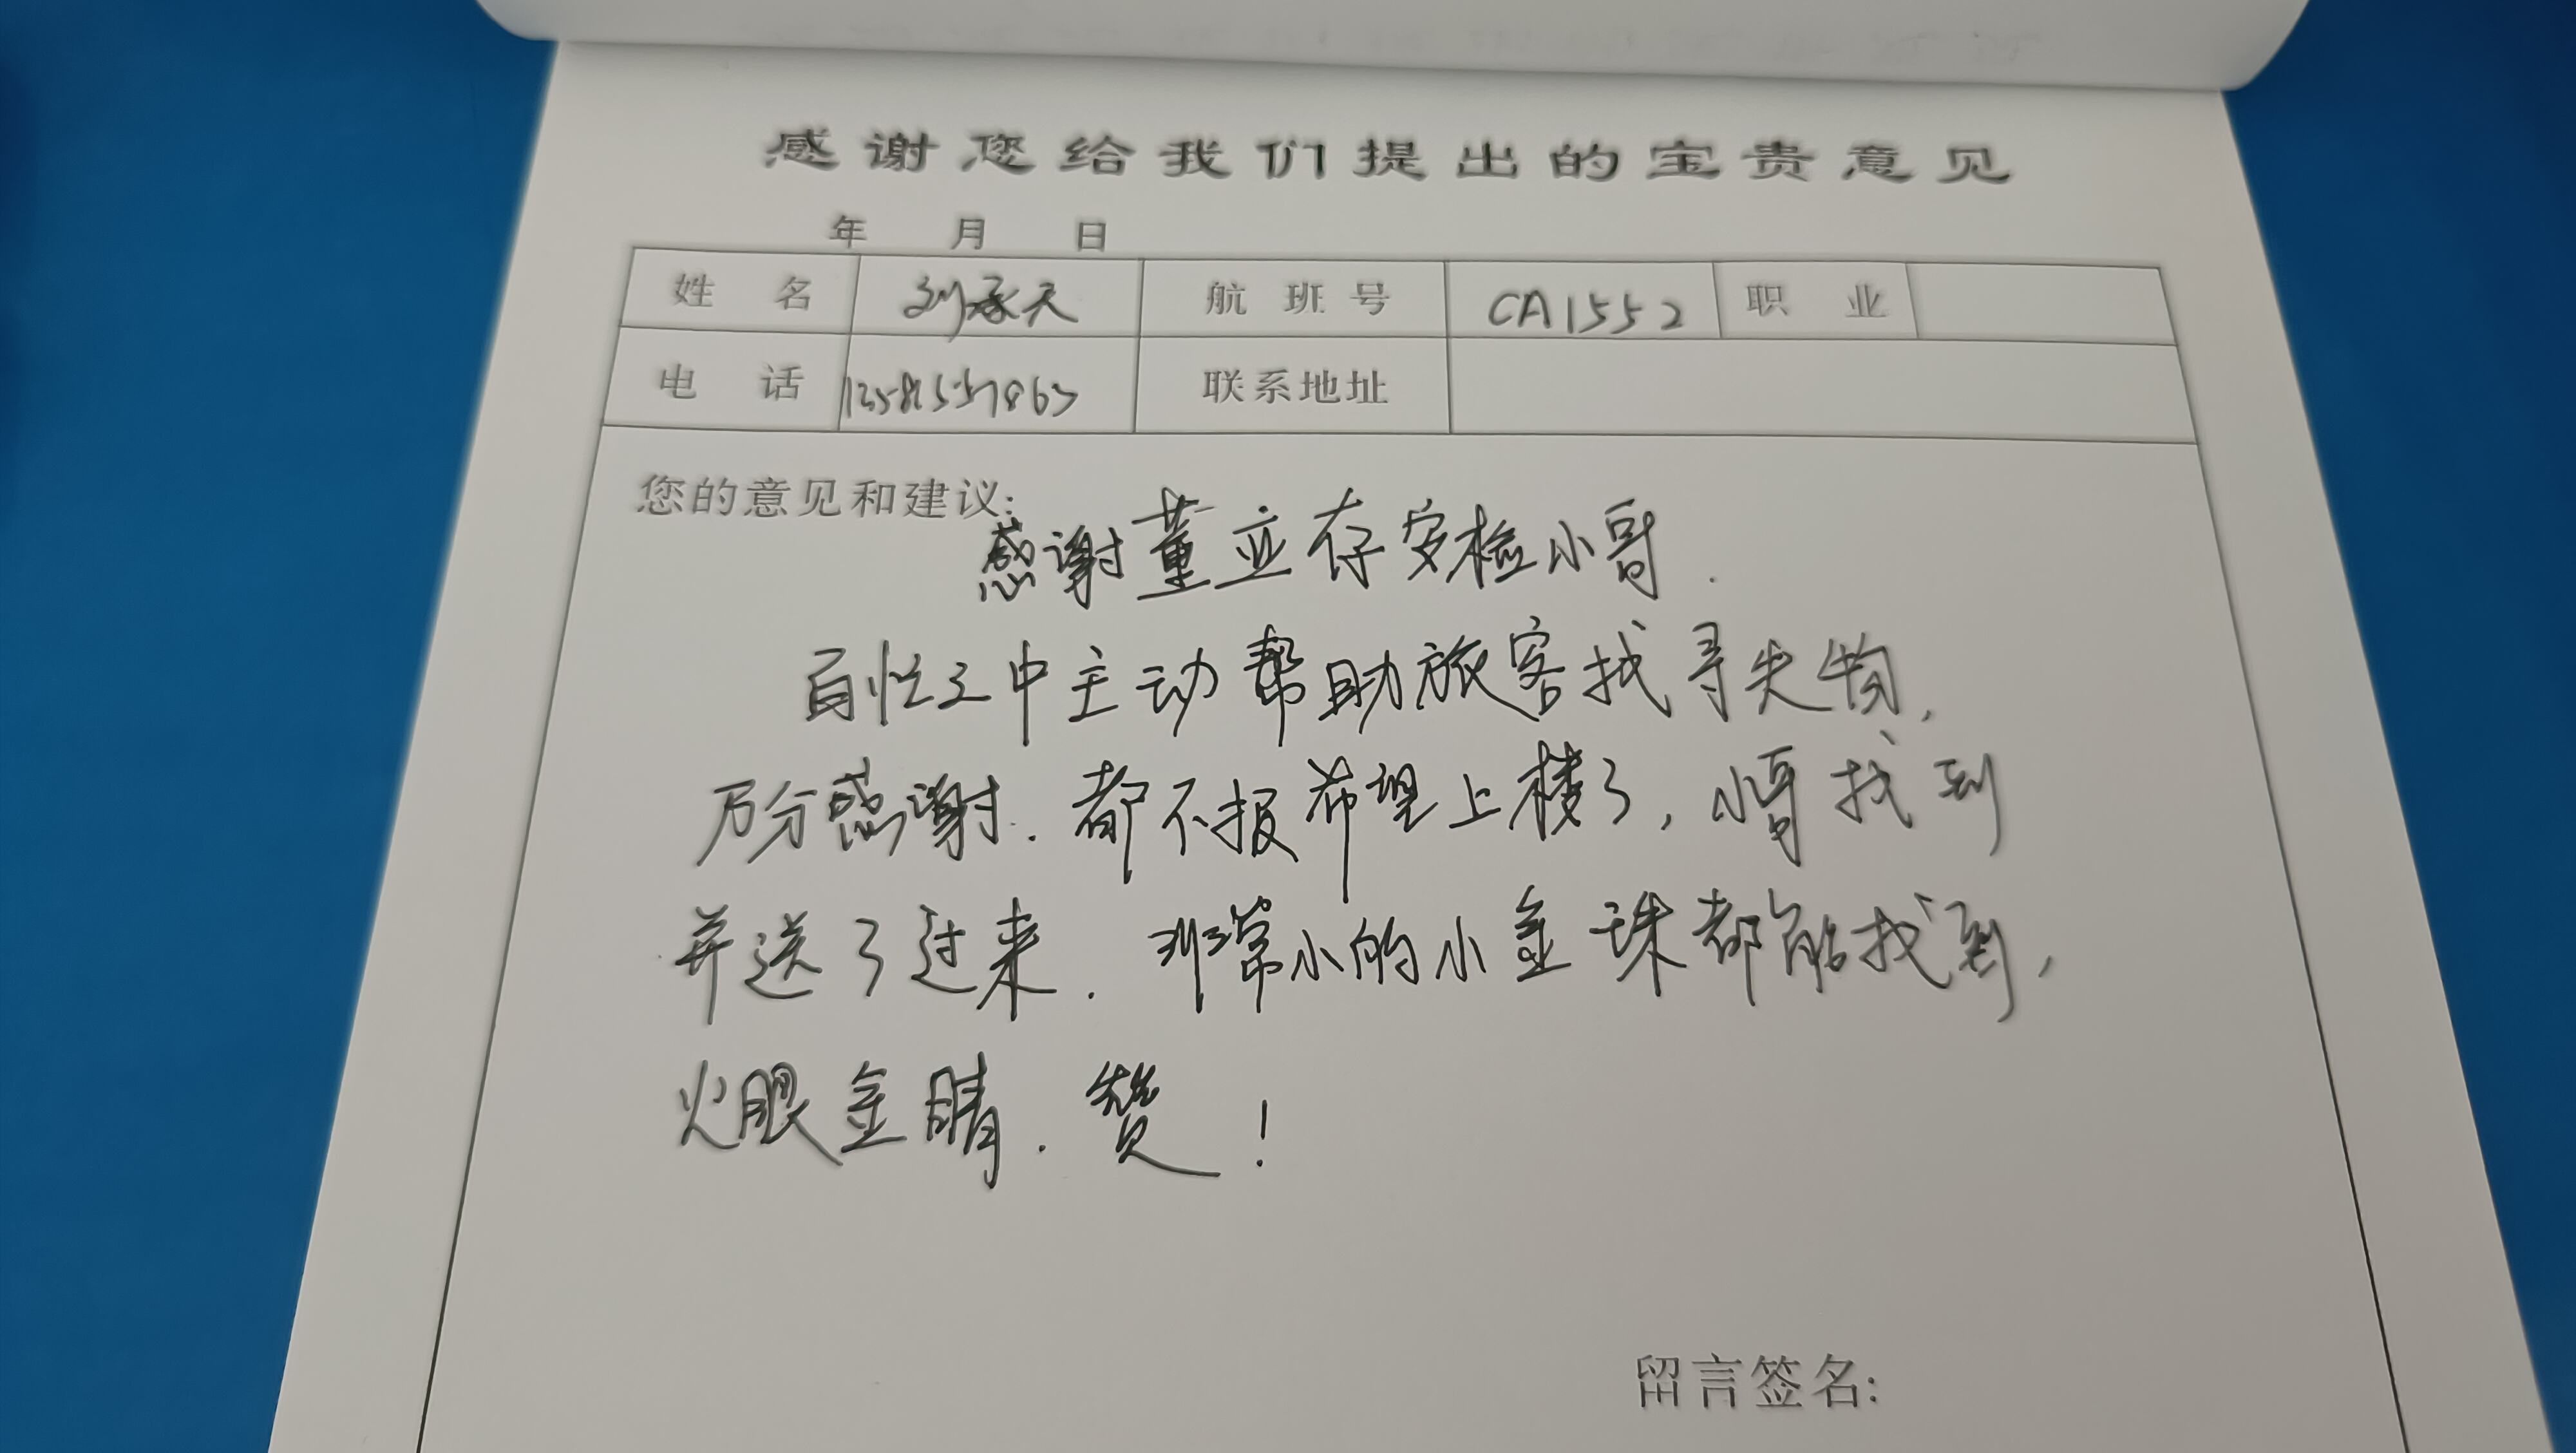 感谢您给我们提出的宝贵意见
年 月 日
姓 名 刘承天 航 班 号 CA1552 职 业
电 话 联系地址
您的意见和建议:
感谢董亚存安检小哥.
百忙之中主动帮助旅客找寻失物,
万分感谢.都不报希望上楼了,小哥找到
并送了过来.非常小的小金珠都能找到,
火眼金睛.赞!
留言签名: